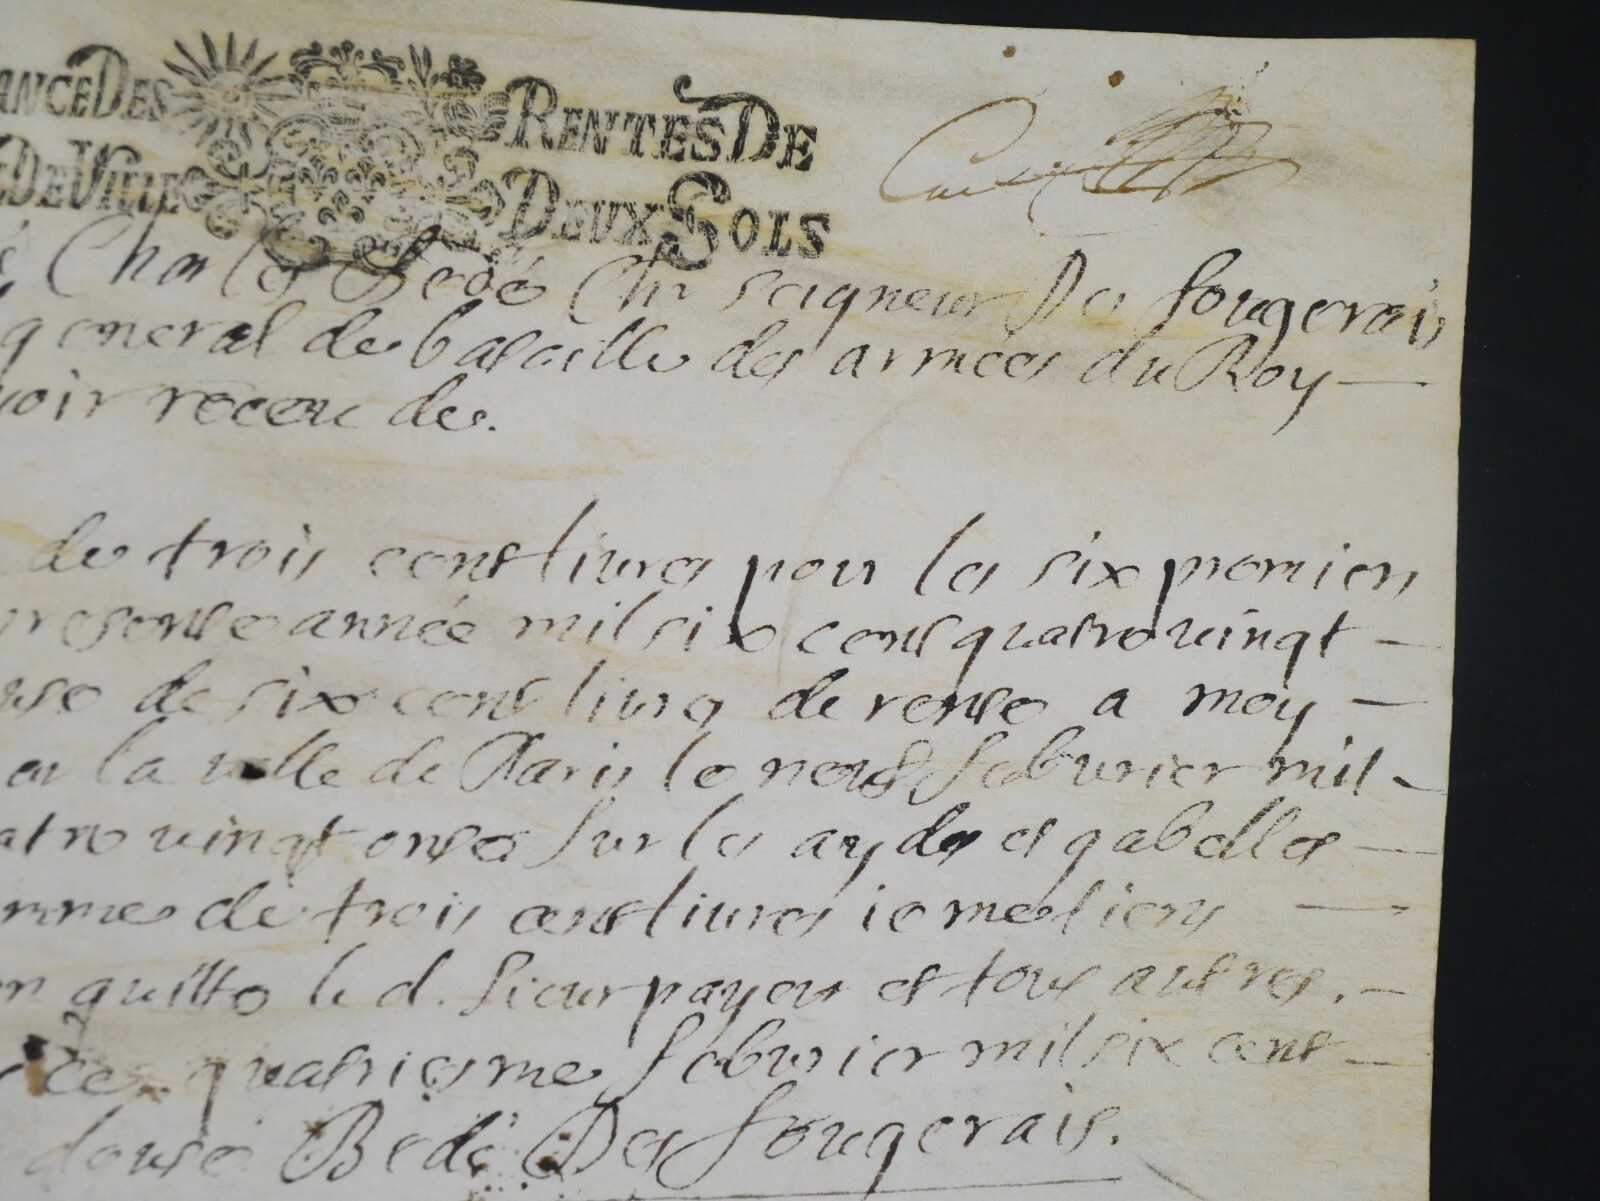 ANCE DES RENTES DE
DE VILLE DEUX SOLS
Charles Bedé Chr seigneur Des fougerais
general de bataille des armées du Roy
voir receu de.
de trois cent livres pour les six premiers
presente année mil six cent quatre vingt
de six cent livres de rente a moy
la ville de Paris le neuf febvrier mil
atre vingt onse sur les aydes et gabelles
omme de trois cent livres ie me tiens
quitte le d. sieur payeur et tous autres.
ce quatriesme febvrier mil six cent
douse Bedé Des fougerais.